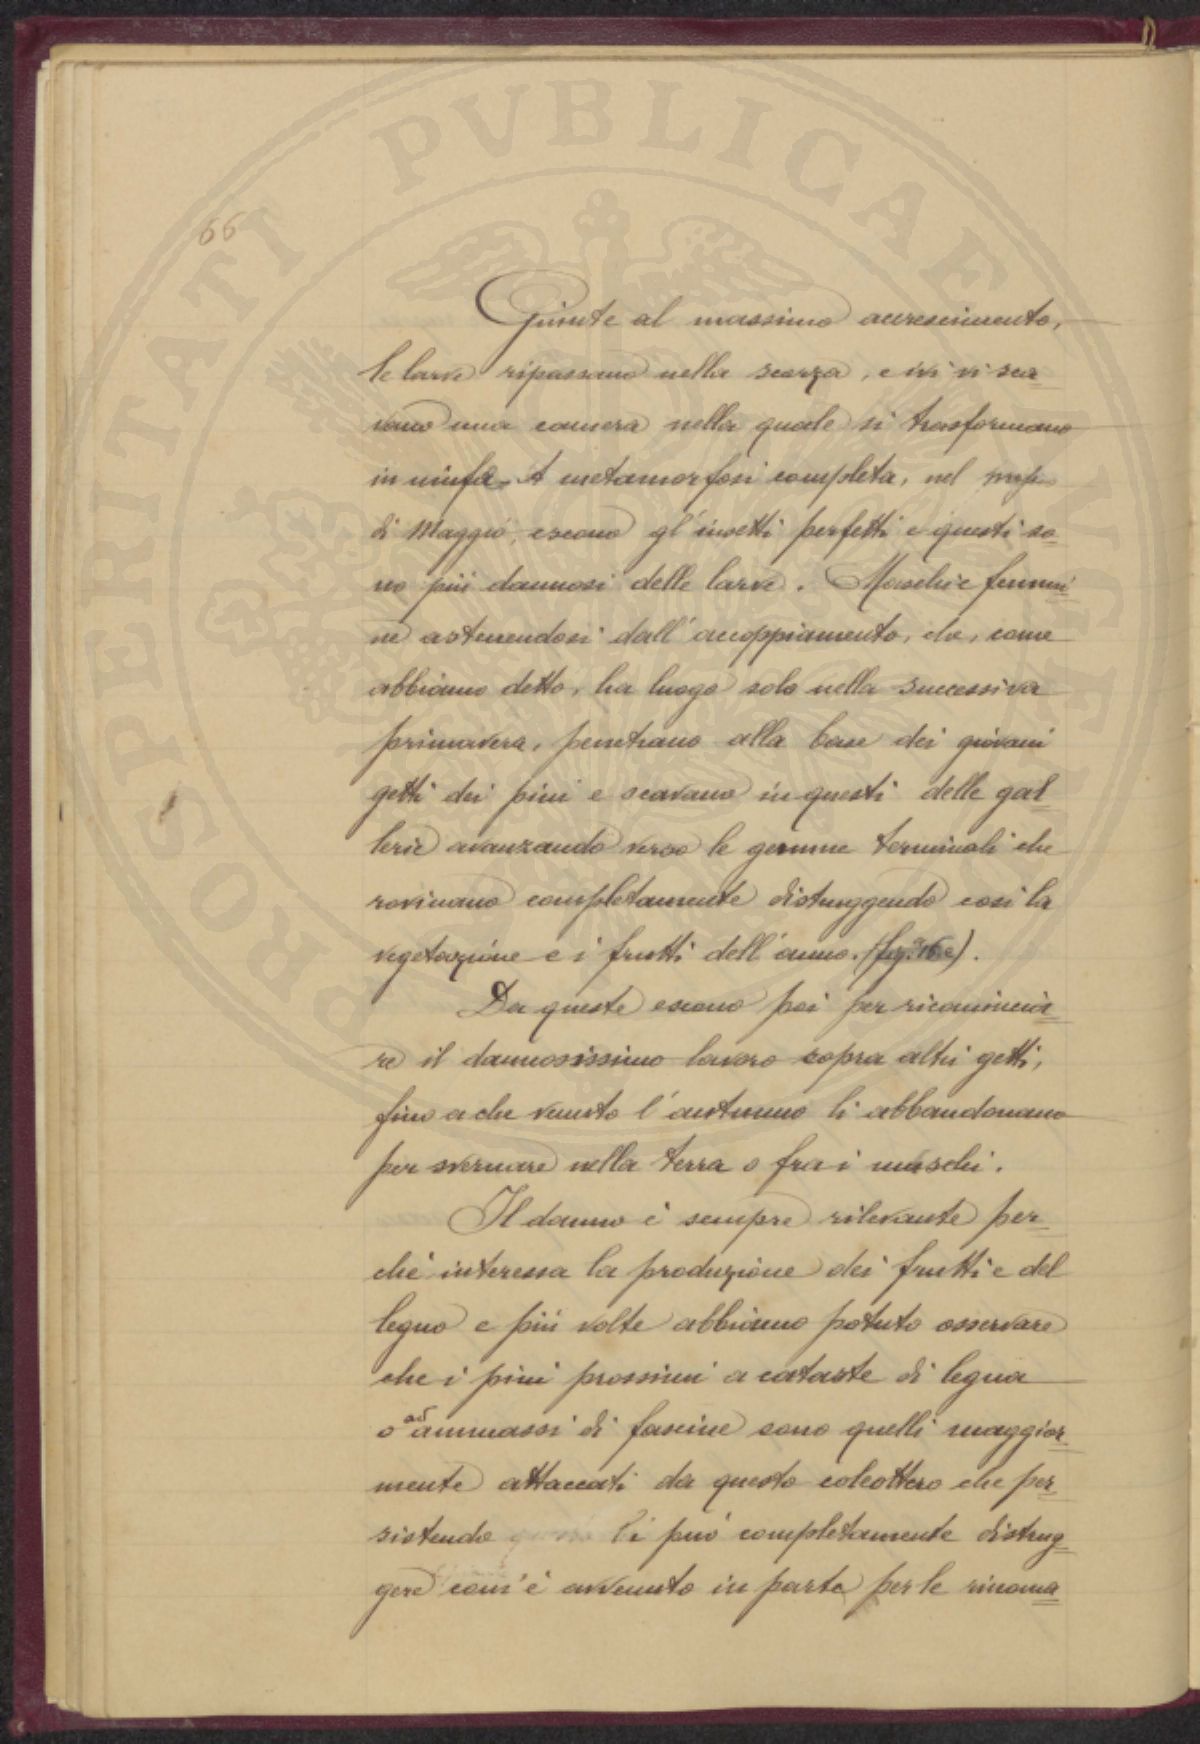 PROSPERITATI PVBLICAE AVGENDAE
66
Giunte al massimo accrescimento,
le larve ripassano nella scorza, e ivi vi sca
vano una camera nella quale si trasformano
in ninfa. A metamorfosi completa, nel
di Maggio, escono gl'insetti perfetti e questi so
no più dannosi delle larve. Maschi e femmi
ne astenendosi dall'accoppiamento, che, come
abbiamo detto, ha luogo solo nella successiva
primavera, penetrano alla base dei giovani
getti dei pini e scavano in questi delle gal
lerie avanzando verso le gemme terminali che
rovinano completamente distruggendo così la
vegetazione e i frutti dell'anno. (fig. 16 e).
Da queste escono poi per ricomincia
re il dannosissimo lavoro sopra altri getti,
fino a che venuto l'autunno li abbandonano
per svernare nella terra o fra i muschi.
Il danno è sempre rilevante per
chè interessa la produzione dei frutti e del
legno e più volte abbiamo potuto osservare
che i pini prossimi a cataste di legna
o ad ammassi di fascine sono quelli maggior
mente attaccati da questo coleottero che per
sistendo li può completamente distrug
gere com'è avvenuto in parte per le rinoma